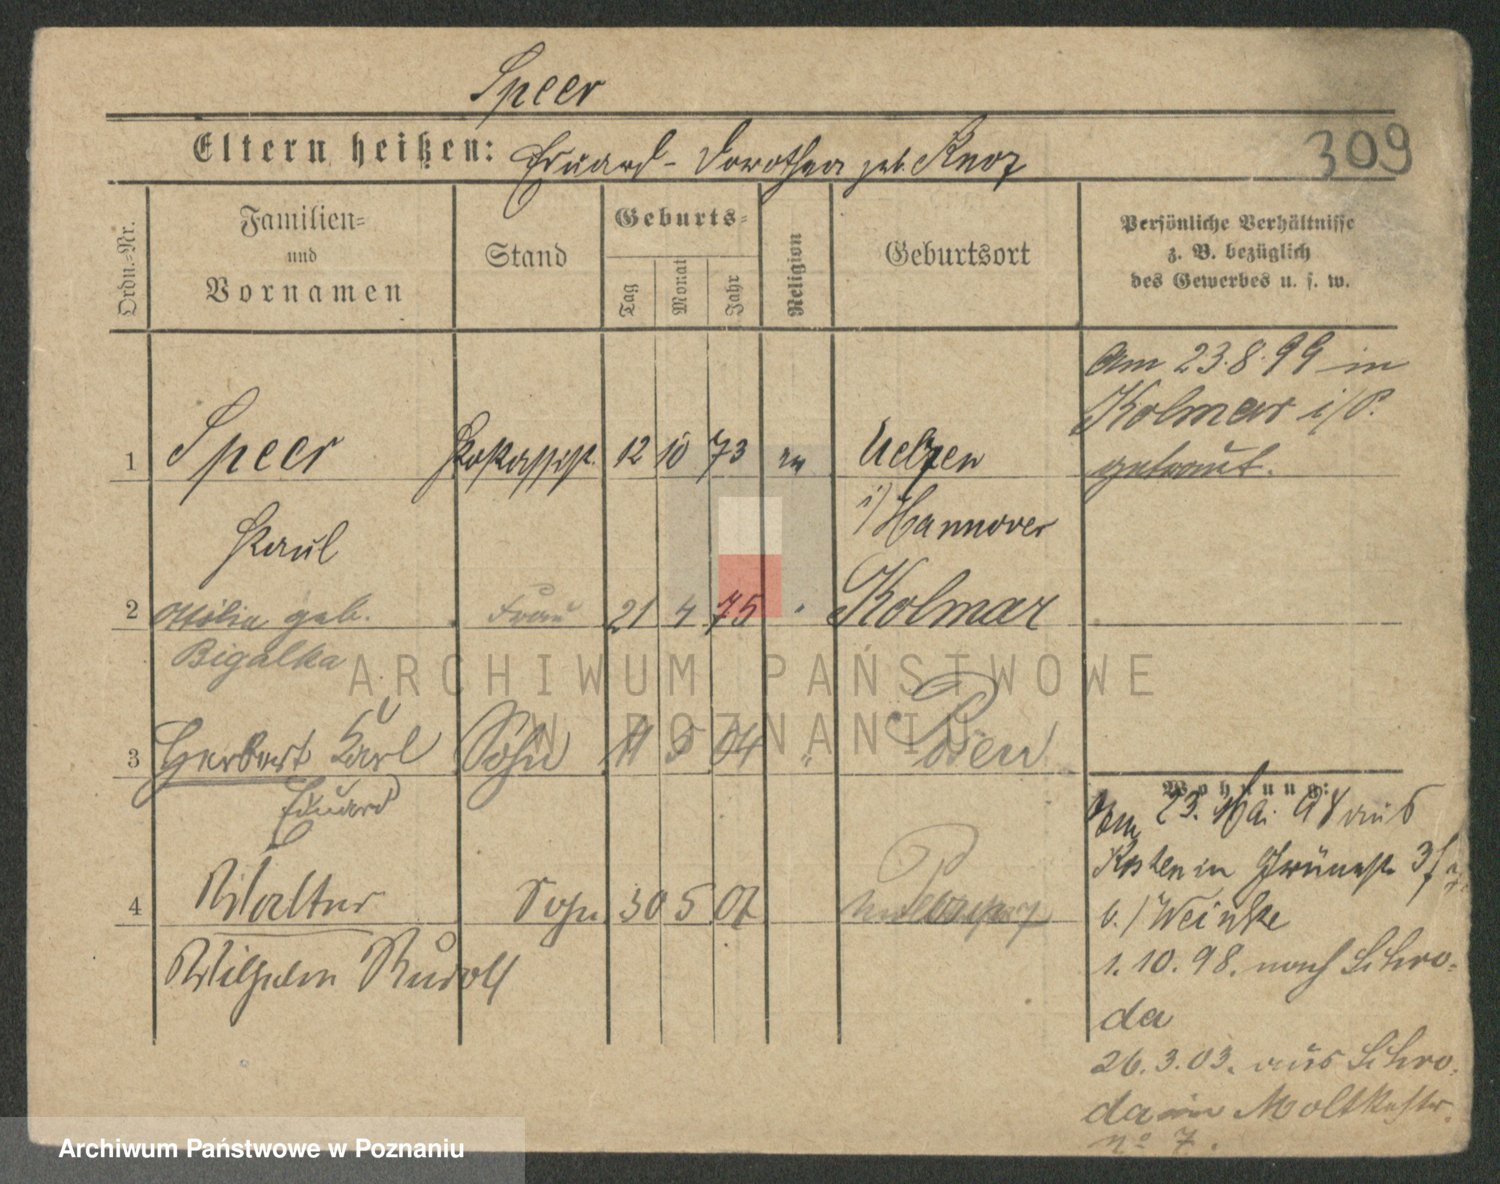 Speer
309
Eltern heißen: Eduard - Dorothea geb. Knoz
Ordn.-Nr.
Familien-
und
Vornamen
Stand
Geburts-
Tag
Monat
Jahr
Religion
Geburtsort
Persönliche Verhältnisse
z. B. bezüglich
des Gewerbes u. s. w.
Am 23.8.99 in
Kolmar i/P.
getraut.
1 Speer Postassist. 12 10 73 ev Uelzen
i/Hannover
Paul
2 Ottilie geb. Frau 21 4 75 " Kolmar
Bigalka
3 Herbert Karl Sohn 11 5 04 " Posen
Eduard
4 Walter Sohn 30 5 07
Wilhelm Rudolf
Wohnung:
23. Mai 98 aus
Kosten in Grünestr. 3
b./Weinke
1.10.98. nach Schro-
da
26.3.03. aus Schro-
da in Moltkestr.
No 7.
ARCHIWUM PAŃSTWOWE
W POZNANIU
Archiwum Państwowe w Poznaniu